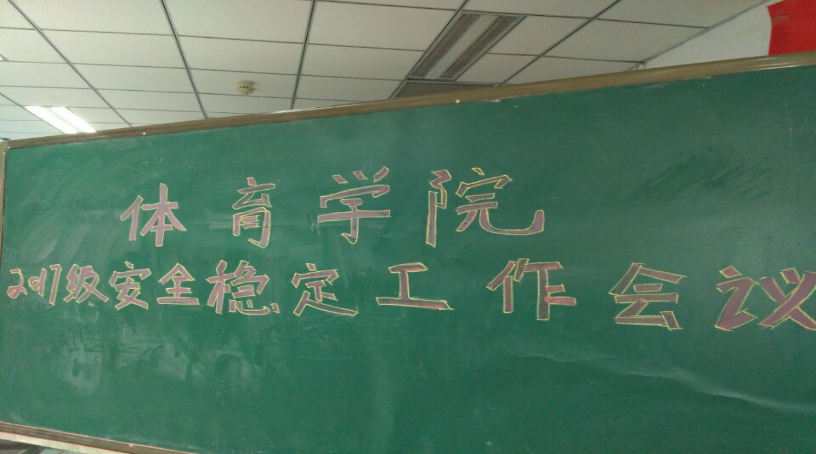 体育学院
2017级安全稳定工作会议